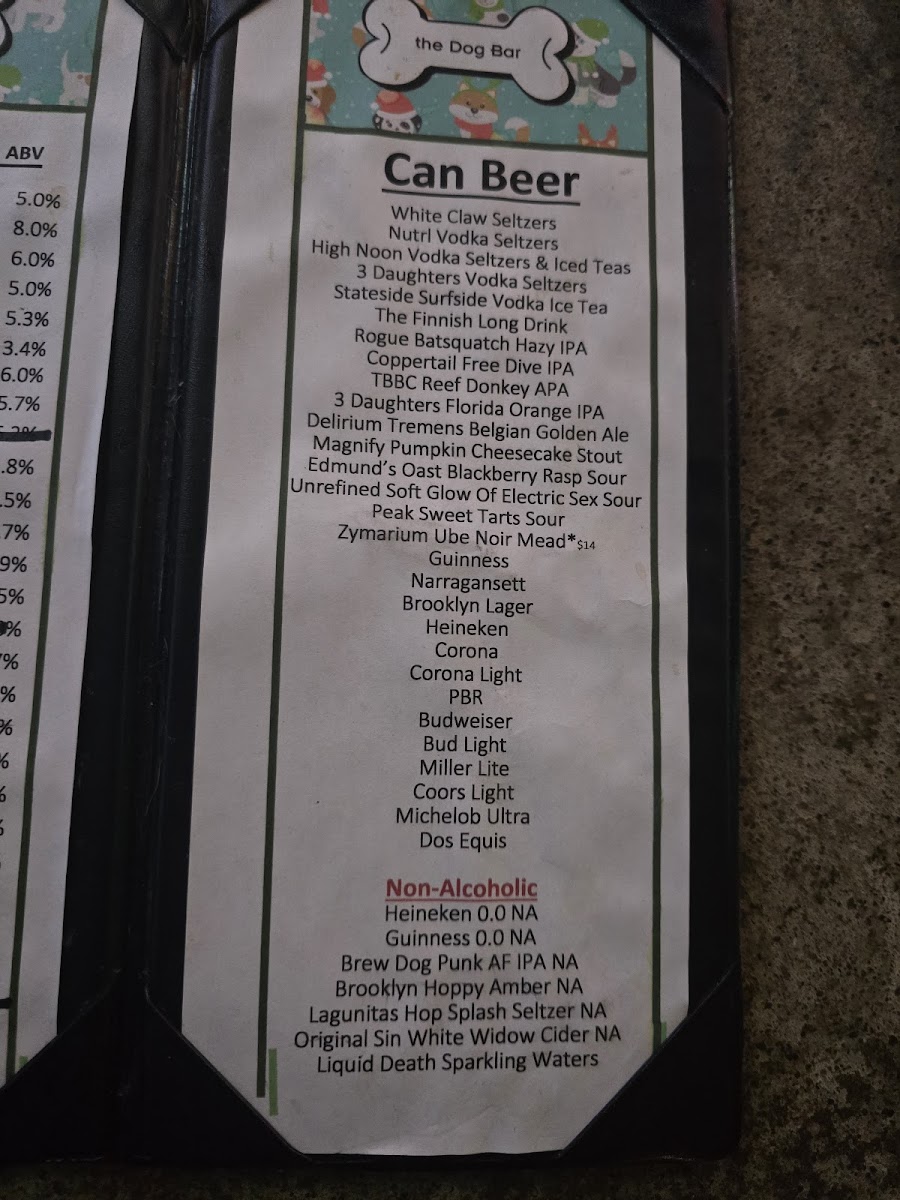 ABV
5.0%
8.0%
6.0%
5.0%
5.3%
3.4%
6.0%
5.7%
.8%
.5%
.7%
9%
5%
%
%
%
%
%
the Dog Bar
Can Beer
White Claw Seltzers
Nutrl Vodka Seltzers
High Noon Vodka Seltzers & Iced Teas
3 Daughters Vodka Seltzers
Stateside Surfside Vodka Ice Tea
The Finnish Long Drink
Rogue Batsquatch Hazy IPA
Coppertail Free Dive IPA
TBBC Reef Donkey APA
3 Daughters Florida Orange IPA
Delirium Tremens Belgian Golden Ale
Magnify Pumpkin Cheesecake Stout
Edmund's Oast Blackberry Rasp Sour
Unrefined Soft Glow Of Electric Sex Sour
Peak Sweet Tarts Sour
Zymarium Ube Noir Mead*$14
Guinness
Narragansett
Brooklyn Lager
Heineken
Corona
Corona Light
PBR
Budweiser
Bud Light
Miller Lite
Coors Light
Michelob Ultra
Dos Equis
Non-Alcoholic
Heineken 0.0 NA
Guinness 0.0 NA
Brew Dog Punk AF IPA NA
Brooklyn Hoppy Amber NA
Lagunitas Hop Splash Seltzer NA
Original Sin White Widow Cider NA
Liquid Death Sparkling Waters